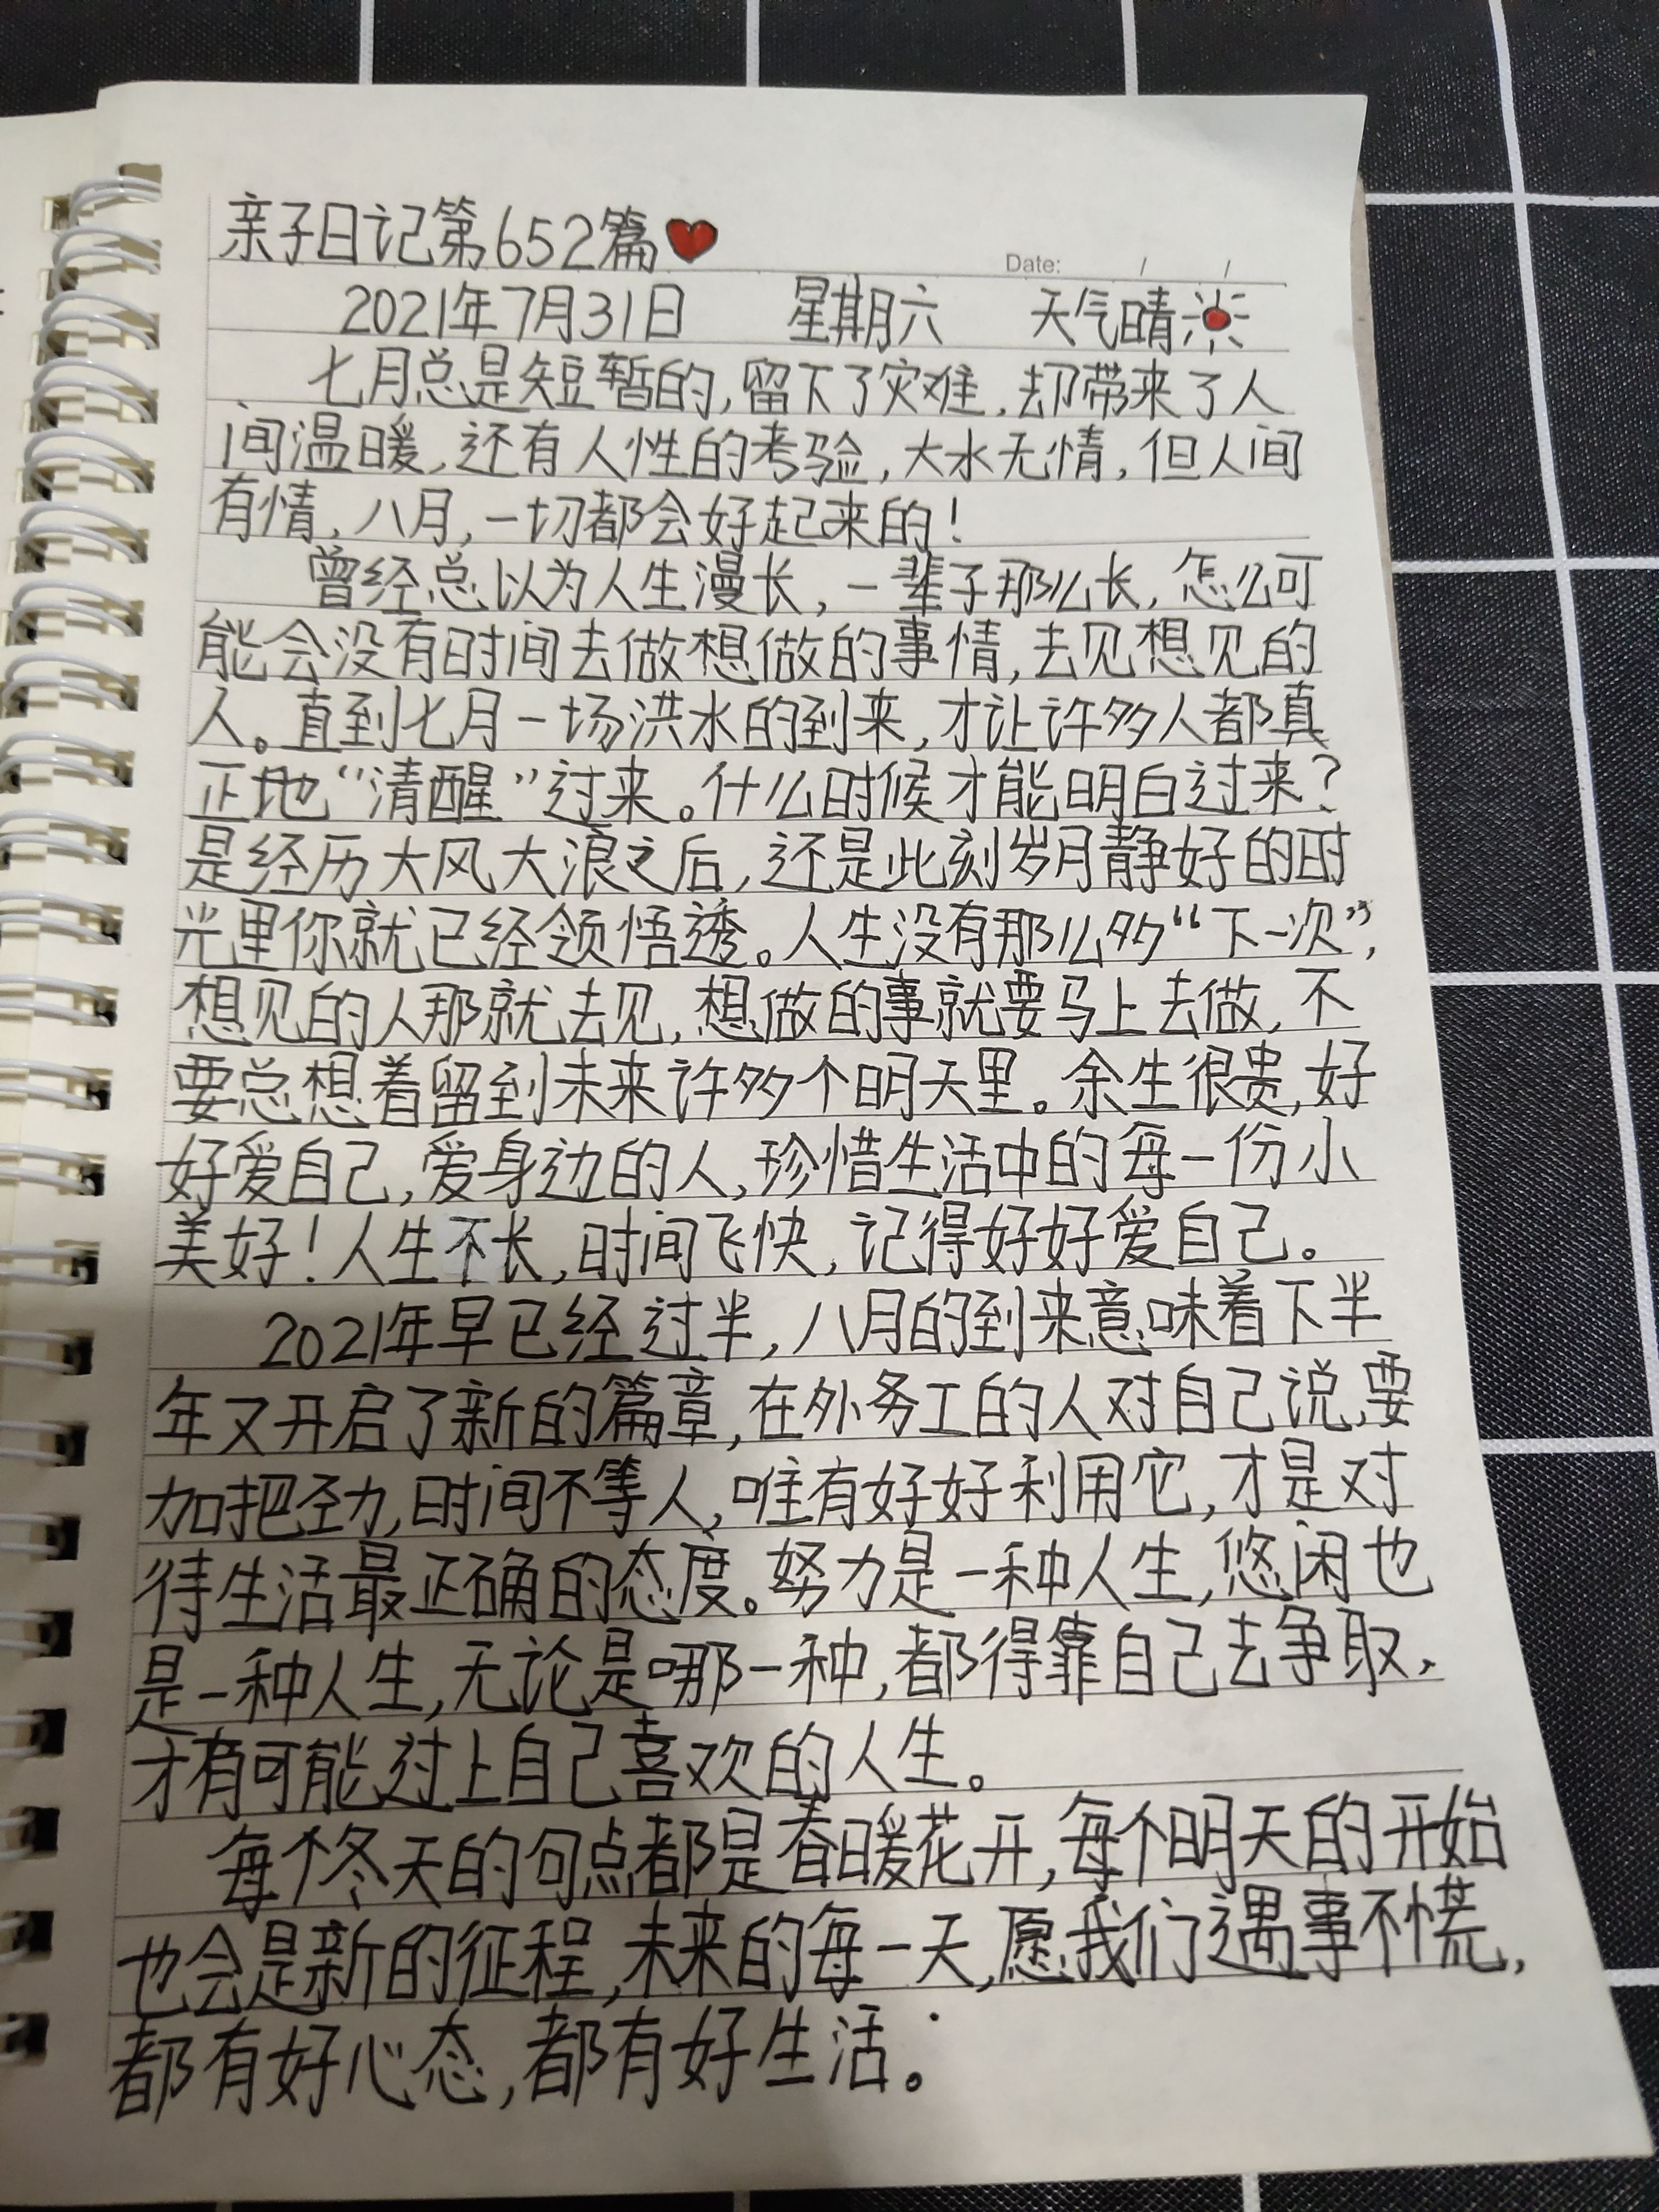 亲子日记第652篇
Date: / /
2021年7月31日 星期六 天气晴
七月总是短暂的,留下了灾难,却带来了人
间温暖,还有人性的考验,大水无情,但人间
有情,八月,一切都会好起来的!
曾经总以为人生漫长,一辈子那么长,怎么可
能会没有时间去做想做的事情,去见想见的
人。直到七月一场洪水的到来,才让许多人都真
正地“清醒”过来。什么时候才能明白过来?
是经历大风大浪之后,还是此刻岁月静好的时
光里你就已经领悟透。人生没有那么多“下一次”,
想见的人那就去见,想做的事就要马上去做,不
要总想着留到未来许多个明天里。余生很贵,好
好爱自己,爱身边的人,珍惜生活中的每一份小
美好!人生不长,时间飞快,记得好好爱自己。
2021年早已经过半,八月的到来意味着下半
年又开启了新的篇章,在外务工的人对自己说,要
加把劲,时间不等人,唯有好好利用它,才是对
待生活最正确的态度。努力是一种人生,悠闲也
是一种人生,无论是哪一种,都得靠自己去争取、
才有可能过上自己喜欢的人生。
每个冬天的句点都是春暖花开,每个明天的开始
也会是新的征程,未来的每一天,愿我们遇事不慌,
都有好心态,都有好生活。